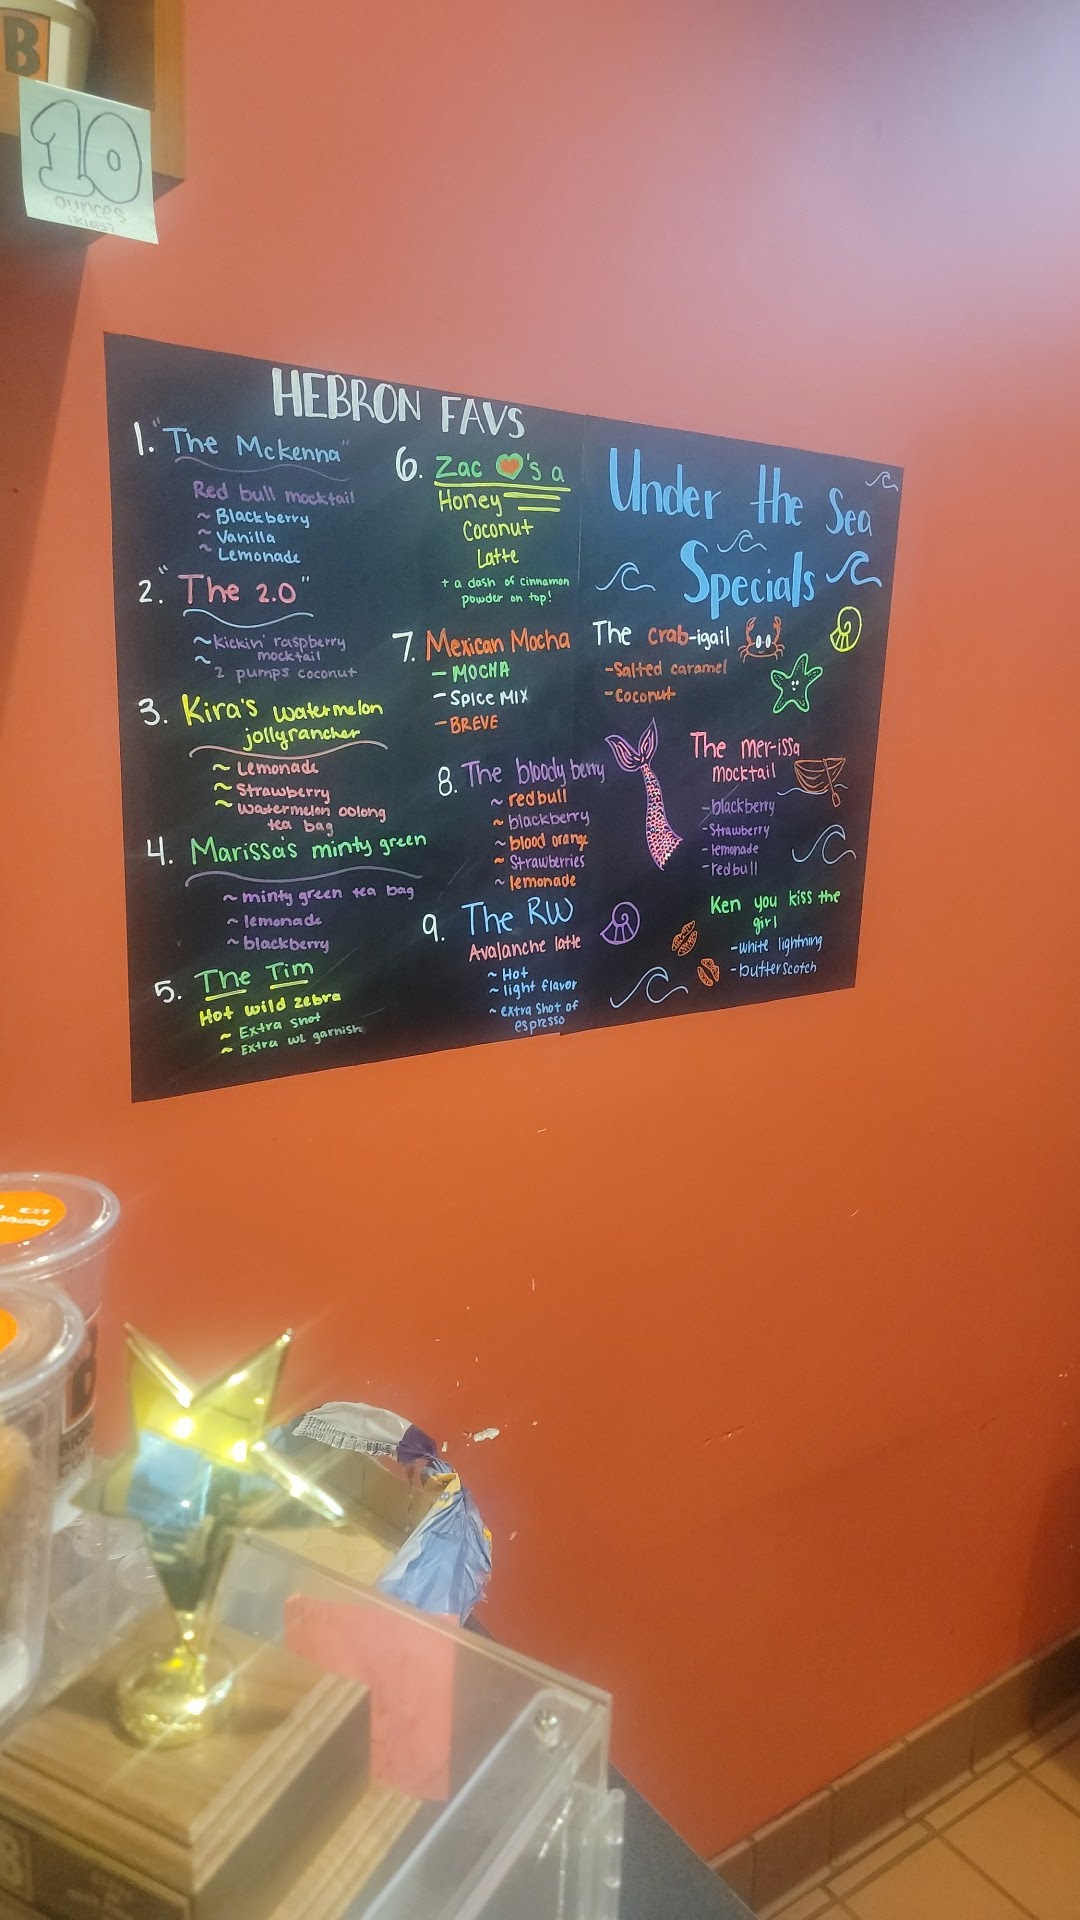 B
10
ounces
HEBRON FAVS
1. "The Mckenna"
Red bull mocktail
~ Blackberry
~ Vanilla
~ Lemonade
2. "The 2.0"
~ kickin' raspberry
mocktail
~ 2 pumps coconut
3. Kira's watermelon
jollyrancher
~ Lemonade
~ Strawberry
~ watermelon oolong
tea bag
4. Marissa's minty green
~ minty green tea bag
~ lemonade
~ blackberry
5. The Tim
Hot wild zebra
~ Extra shot
~ Extra WL garnish
6. Zac ❤'s a
Honey
Coconut
Latte
+ a dash of cinnamon
powder on top!
7. Mexican Mocha
- MOCHA
- SPICE MIX
- BREVE
8. The bloody berry
~ redbull
~ blackberry
~ blood orange
~ Strawberries
~ lemonade
9. The RW
Avalanche latte
~ Hot
~ light flavor
~ extra shot of
espresso
Under the Sea
Specials
The crab-igail
- Salted caramel
- Coconut
The mer-issa
mocktail
- blackberry
- Strawberry
- lemonade
- redbull
Ken you kiss the
girl
- white lightning
- butterscotch
B